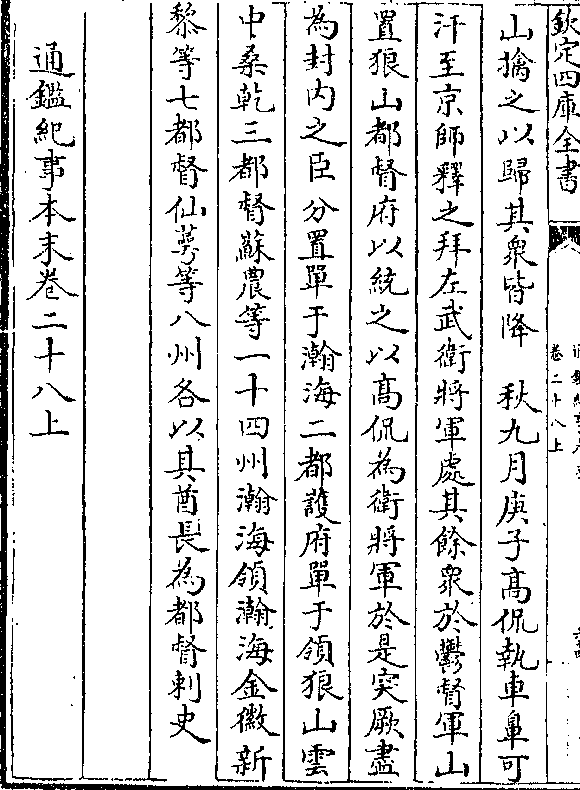 欽定四庫全書
卷二十八上
山擒之以歸其衆皆降　秋九月庚子髙侃執車鼻可
汗至京師釋之拜左武衛將軍處其餘衆於鬱督軍山
置狼山都督府以統之以髙侃為衛將軍於是突厥盡
為封内之臣分置單于瀚海二都䕶府單于領狼山雲
中桑乾三都督蘇農等一十四州瀚海領瀚海金徽新
黎等七都督仙萼等八州各以其酋長為都督刺史
通鑑紀事本末卷二十八上